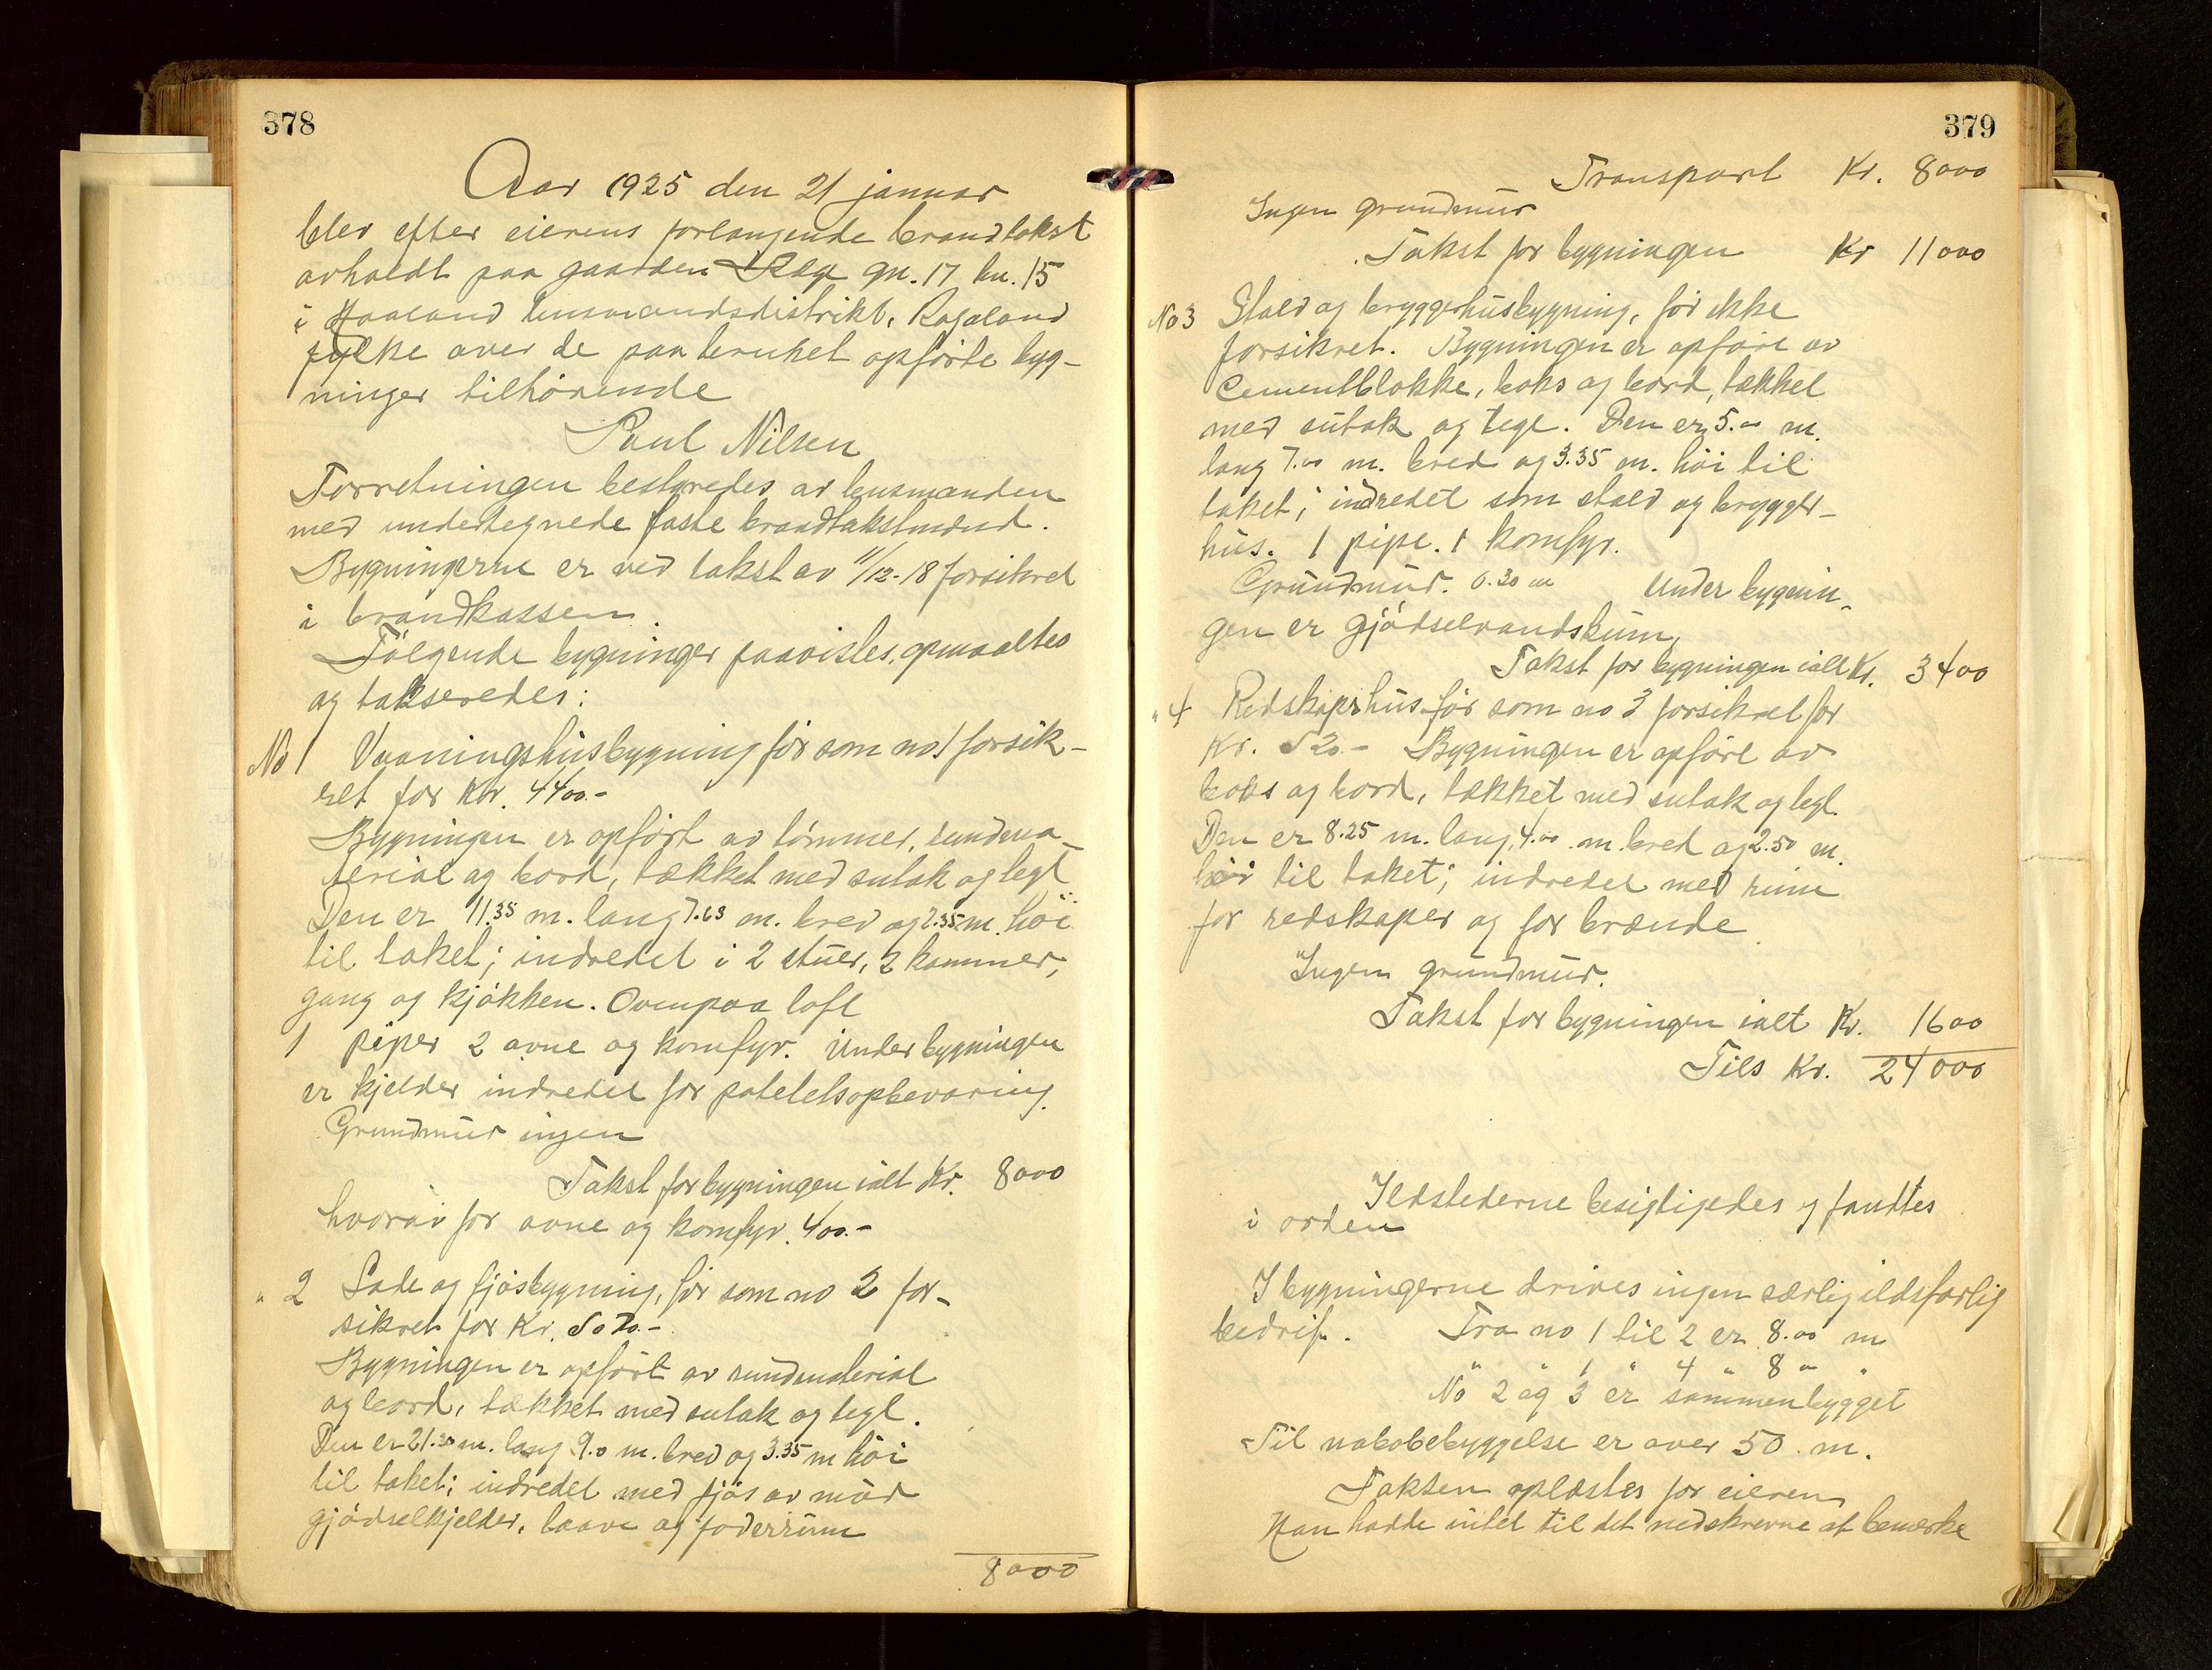 378
Aar 1925 den 21 januar
blev efter eierens forlangende brandtakst
avholdt paa gaarden Ræge gn. 17 bn. 15
i Haaland lensmandsdistrikt, Rogaland
fylke over de paa bruket opførte byg-
ninger tilhørende
Paul Nilsen
Forretningen bestyredes av lensmanden
med undertegnede faste brandtakstmænd.
Bygningerne er ved takst av 11/12-18 forsikret
i brandkassen.
Følgende bygninger paavistes, opmaaltes
og takseredes:
No 1 Vaaningshusbygning før som no 1 forsik-
ret for Kr. 4400.-
Bygningen er opført av tømmer, rundma-
terial og bord, tækket med sutak og tegl
Den er 11.35 m. lang 7.63 m. bred og 2.35 m. høi
til taket; indredet i 2 stuer, 2 kammer,
gang og kjøkken. Ovenpaa loft
1 piper 2 ovne og komfyr. Under bygningen
er kjelder indredet for potetetsopbevaring.
Grundmur ingen
Takst for bygningen ialt Kr. 8000
hvorav for ovne og komfyr. 400.-
" 2 Lade og fjøsbygning, før som no 2 for-
sikret for Kr. 5070.-
Bygningen er opført av rundmaterial
og bord, tækket med sutak og tegl.
Den er 21.30 m. lang 9.0 m. bred og 3.35 m høi
til taket; indredet med fjøs av mur
gjødselkjelder, laave og foderrum
8000
379
Transport Kr. 8000
Ingen grundmur
Takst for bygningen Kr 11000
No 3 Stald og bryggerhusbygning, før ikke
forsikret. Bygningen er opført av
Cementblokke, boks og bord, tækket
med sutak og tegl. Den er 5.00 m.
lang 7.00 m. bred og 3.35 m. høi til
taket; indredet som stald og brygger-
hus. 1 pipe. 1 komfyr.
Grundmur. 0.30 m Under bygnin-
gen er gjødselvandskum,
Takst for bygningen ialt Kr. 3400
" 4 Redskapshus før som no 3 forsikret for
Kr. 520.- Bygningen er opført av
boks og bord, tækket med sutak og tegl.
Den er 8.25 m. lang, 4.00 m. bred og 2.50 m.
høi til taket; indredet med rum
for redskaper og for brænde
Ingen grundmur.
Takst for bygningen ialt Kr. 1600
Tils Kr. 24000
Ildstederne besigtigedes og fandtes
i orden
I bygningerne drives ingen særlig ildsfarlig
bedrif. Fra no 1 til 2 er 8.00 m
" " 1 " 4 " 8 00 "
No 2 og 3 er sammenbygget
Til nabobebyggelse er over 50 m.
Taksten oplæstes for eieren
Han hadde intet til det nedskrevne at bemerke